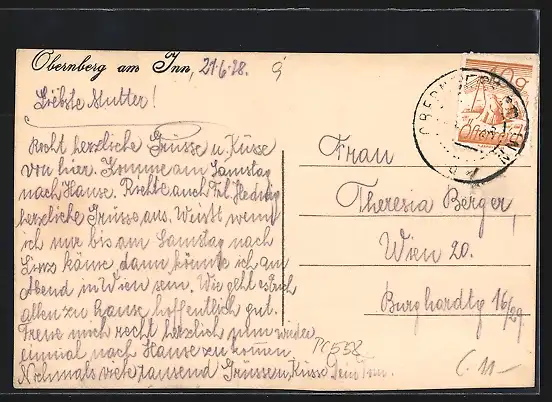 Obernberg am Inn, 21.6.28.
Liebste Mutter!
Recht herzliche Grüsse u. Küsse
von hier. Komme am Samstag
nach Hause. Richte auch Frl. Hedwig
herzliche Grüsse aus. Weisst wenn
ich nur bis am Samstag nach
Linz käme, dann könnte ich am
Abend in Wien sein. Wie geht es Euch
allen zu Hause hoffentlich gut.
Freue mich recht herzlich nun wieder
einmal nach Hause zu kommen.
Nochmals viele tausend Grüsse u. Küsse Dein
Frau
Theresia Berger,
Wien 20.
Burghardtg 16/29.
PC538
C 11-
10g
OBERNBERG AM INN